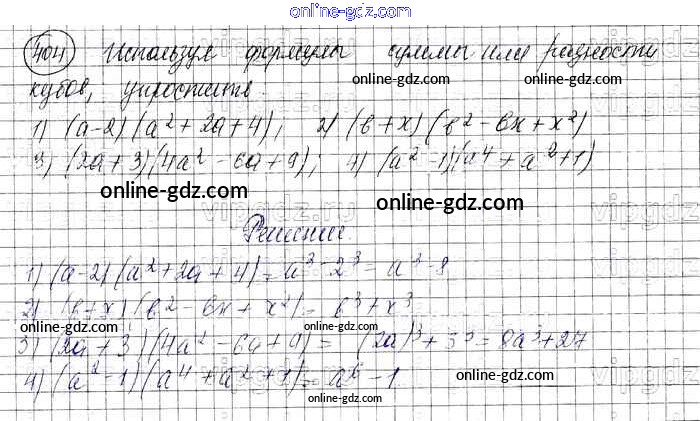 online-gdz.com
404 Используя формулы суммы или разности
кубов, упростить.
online-gdz.com online-gdz.com
1) (a-2)(a²+2a+4); 2) (в+x)(в²-вx+x²)
3) (2a+3)(4a²-6a+9); 4) (a²-1)(a⁴+a²+1)
online-gdz.com online-gdz.com
vipgdz.ru vipgdz
Решение.
1) (a-2)(a²+2a+4)=a³-2³=a³-8
online-gdz.com
2) (в+x)(в²-вx+x²)=в³+x³
online-gdz.com
3) (2a+3)(4a²-6a+9)=(2a)³+3³=8a³+27
online-gdz.com
4) (a²-1)(a⁴+a²+1)=a⁶-1
online-gdz.com
online-gdz.com